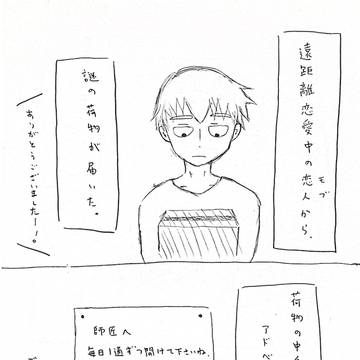 遠距離恋愛中の恋人から、
モブ
謎の荷物が届いた。
ありがとうございましたー！。
荷物の中
アドベ
師匠へ
毎日1通ずつ開けて下さいね。